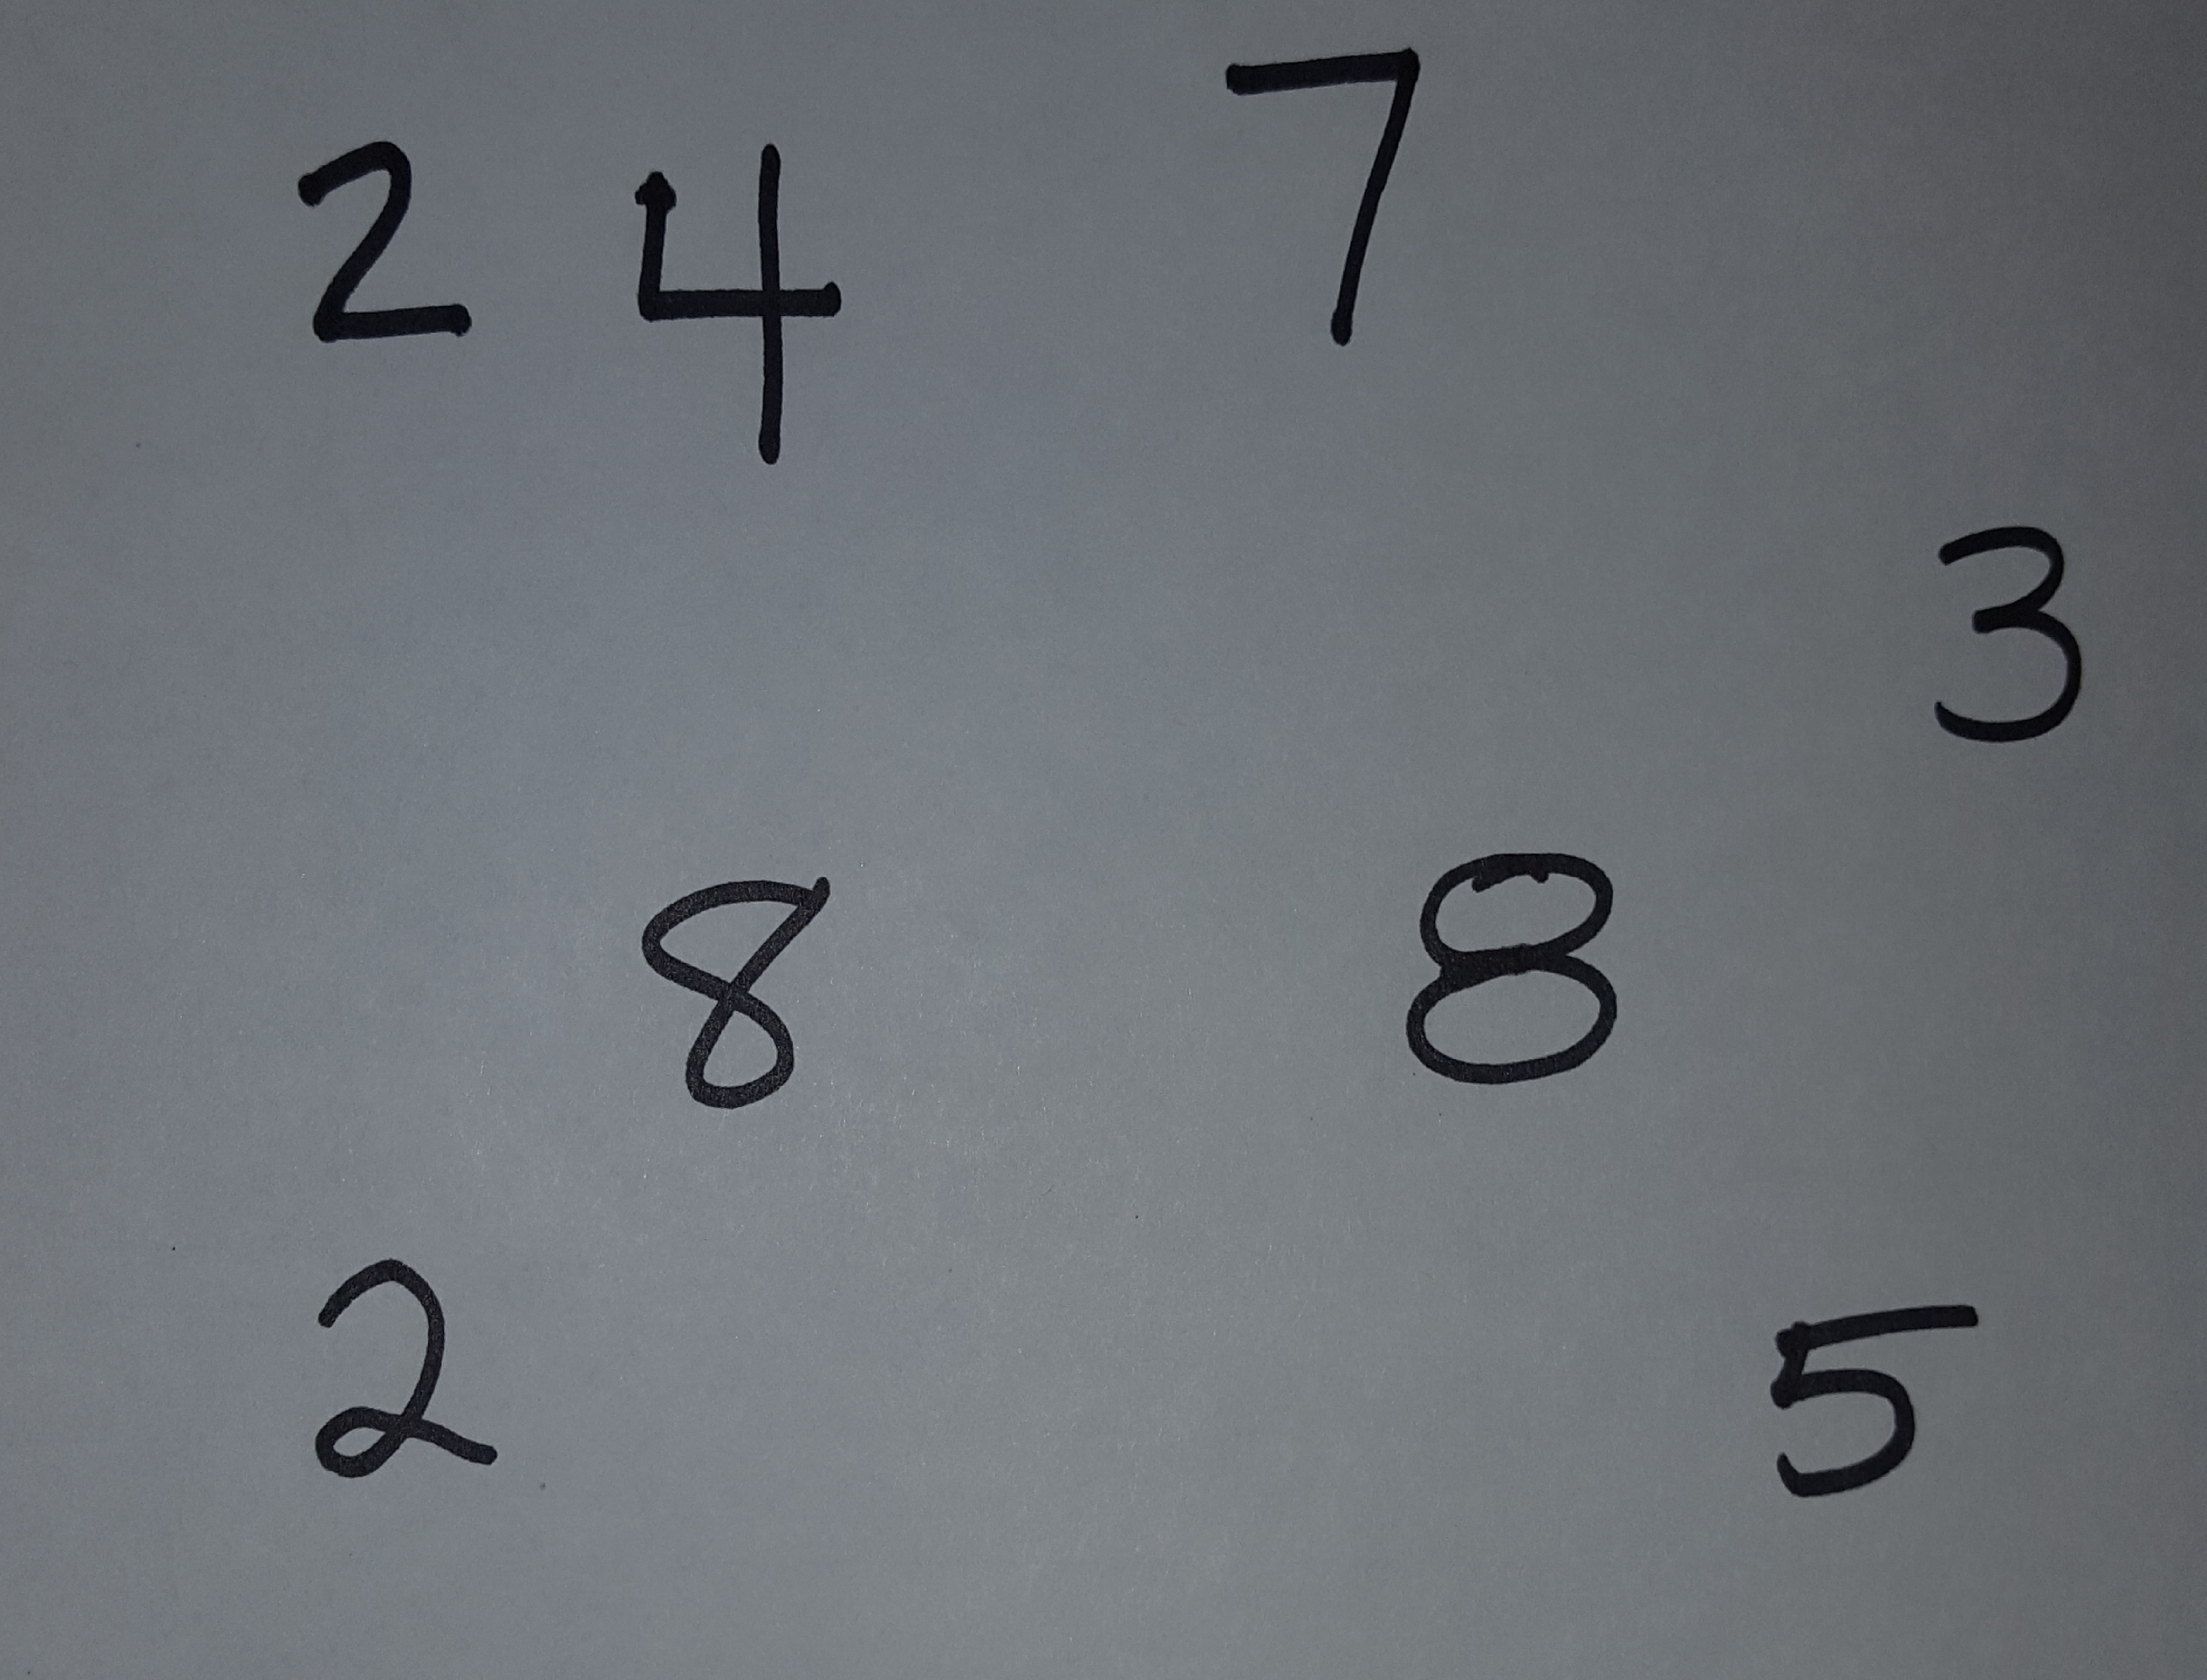 2 4 7
3
8 8
2 5